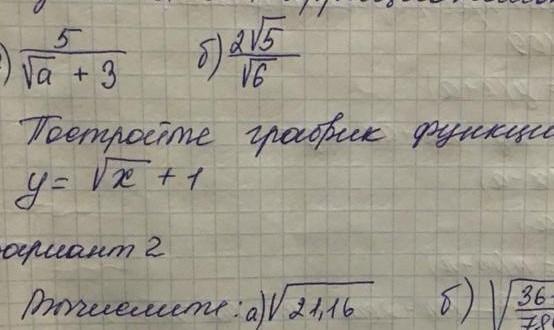 ) 5/(√a + 3) б) 2√5/√6
Постройте график функци
y = √x + 1
ариант 2
Вычислите: а) √21,16 б) √36